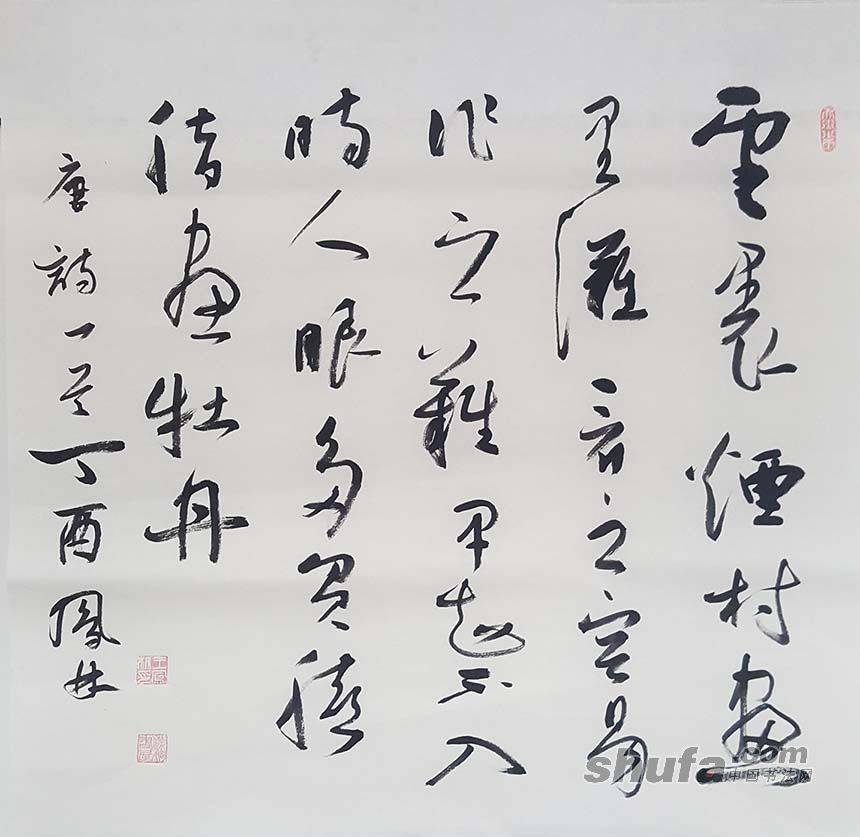 雲裏煙村畫
里灘看之容易
作之難早知不入
時人眼多買臙
脂畫牡丹
唐詩一首丁酉鳳林
shufa.com
中国书法网